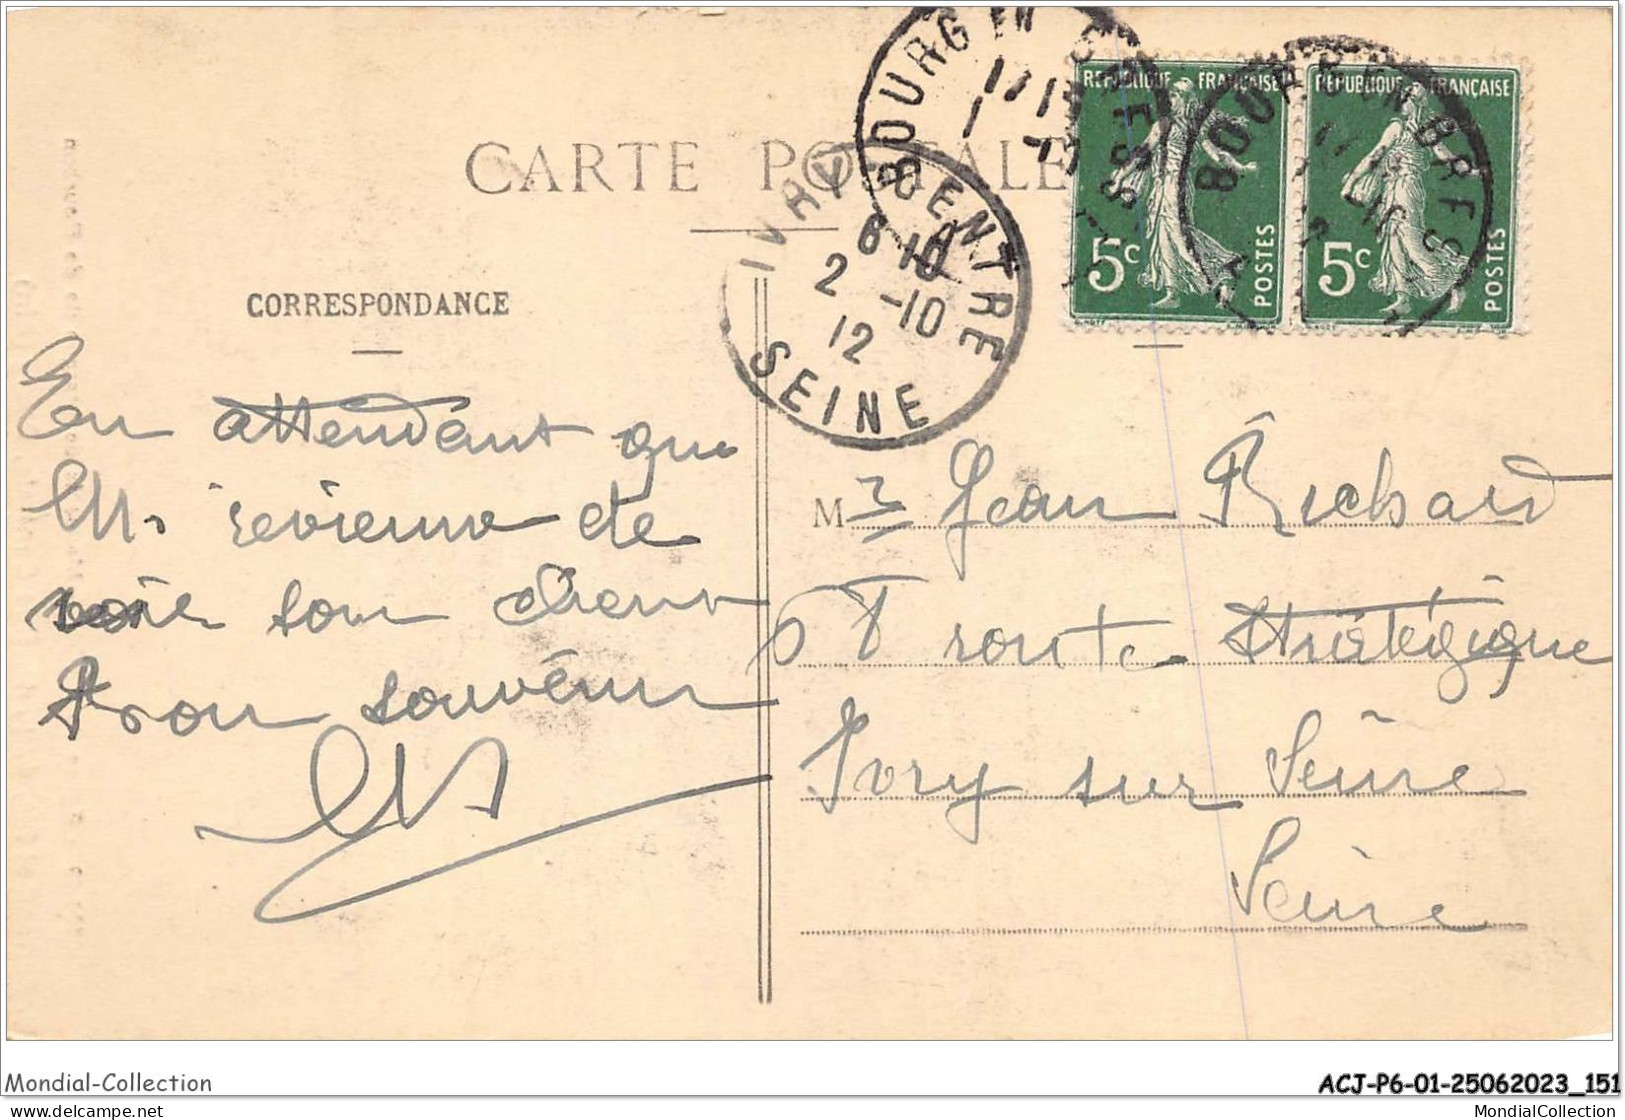 CARTE POSTALE
CORRESPONDANCE
BOURG EN BRESSE
BOURG EN BRESSE
IVRY CENTRE
6 10
2 -10
12
SEINE
REPUBLIQUE FRANÇAISE
5c POSTES
REPUBLIQUE FRANÇAISE
5c POSTES
En attendant que
M. revienne de
voir son
Bon souvenir
Mr Jean Richard
route Stratégique
Ivry sur Seine
Seine
Mondial-Collection
ACJ-P6-01-25062023_151
www.delcampe.net
MondialCollection